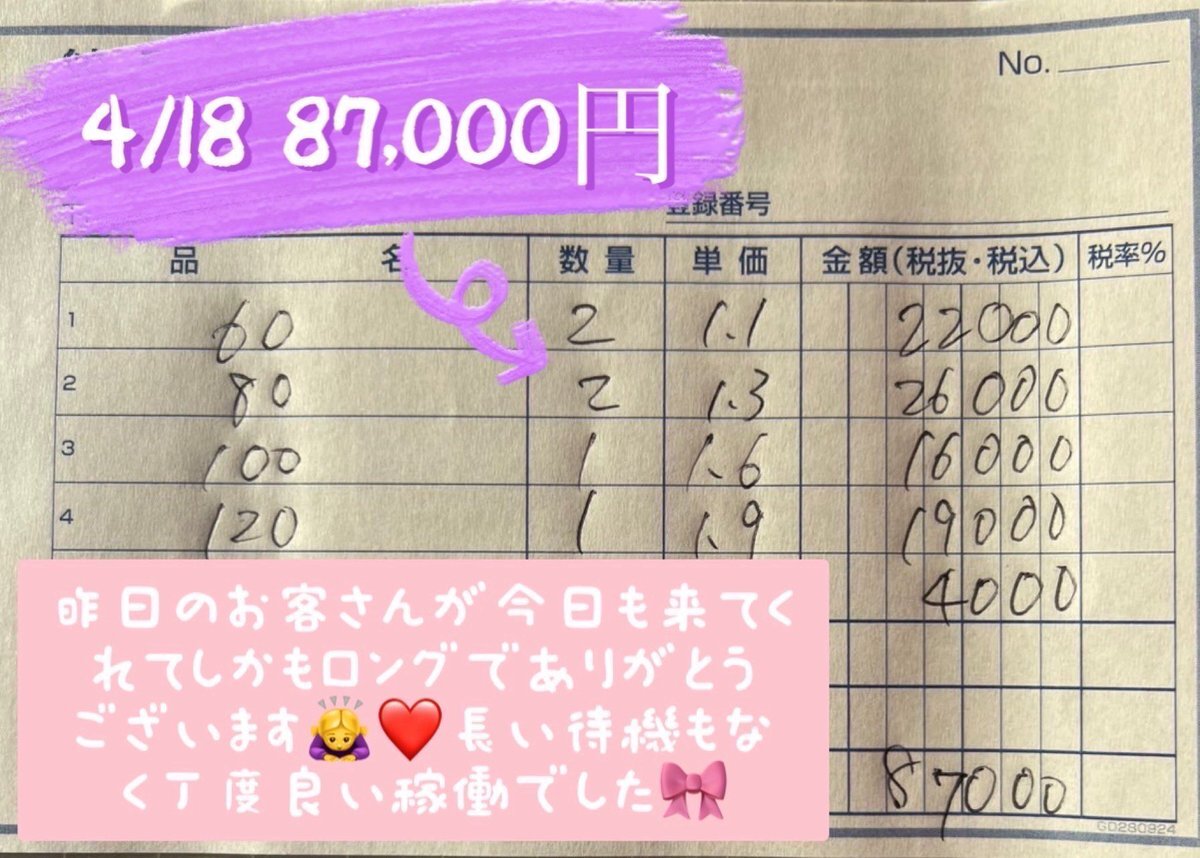 No.
4/18 87,000円
登録番号
品 名 数量 単価 金額(税抜・税込) 税率%
1 60 2 1.1 22000
2 80 2 1.3 26000
3 100 1 1.6 16000
4 120 1 1.9 19000
4000
昨日のお客さんが今日も来てく
れてしかもロングでありがとう
ございます🙇‍♀️❤️長い待機もな
く丁度良い稼働でした🎀
87000
GD280924